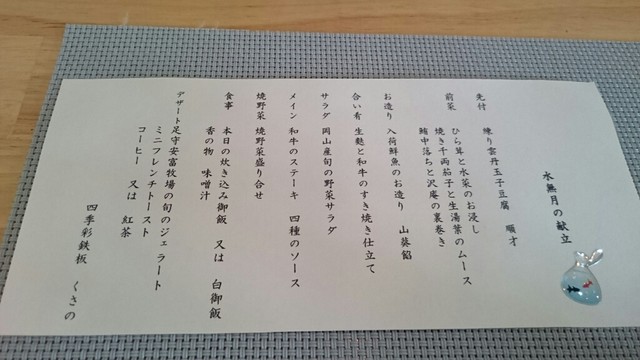 水無月の献立
先付 練り雲丹玉子豆腐 順才
前菜 ひら茸と水菜のお浸し
焼き千両茄子と生湯葉のムース
鮪中落ちと沢庵の裏巻き
お造り 入荷鮮魚のお造り 山葵餡
合い肴 生麩と和牛のすき焼き仕立て
サラダ 岡山産旬の野菜サラダ
メイン 和牛のステーキ 四種のソース
焼野菜 焼野菜盛り合せ
食事 本日の炊き込み御飯 又は 白御飯
香の物 味噌汁
デザート 足守安富牧場の旬のジェラート
ミニフレンチトースト
コーヒー 又は 紅茶
四季彩鉄板 くさの